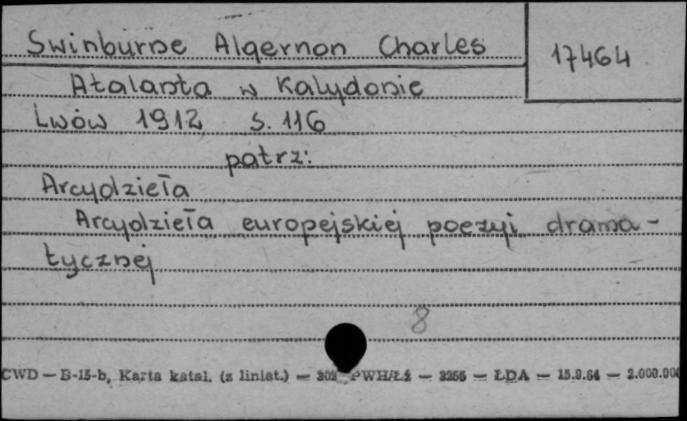 Swinburne Algernon Charles
17464
Atalanta w Kalydonie
Lwów 1912 s. 116
patrz:
Arcydzieła
Arcydzieła europejskiej poezyi drama-
tycznej
8
CWD — B-15-b, Karta katal. (z liniat.) — PWH/Łż — 3256 — ŁDA — 15.9.64 — 2.000.000